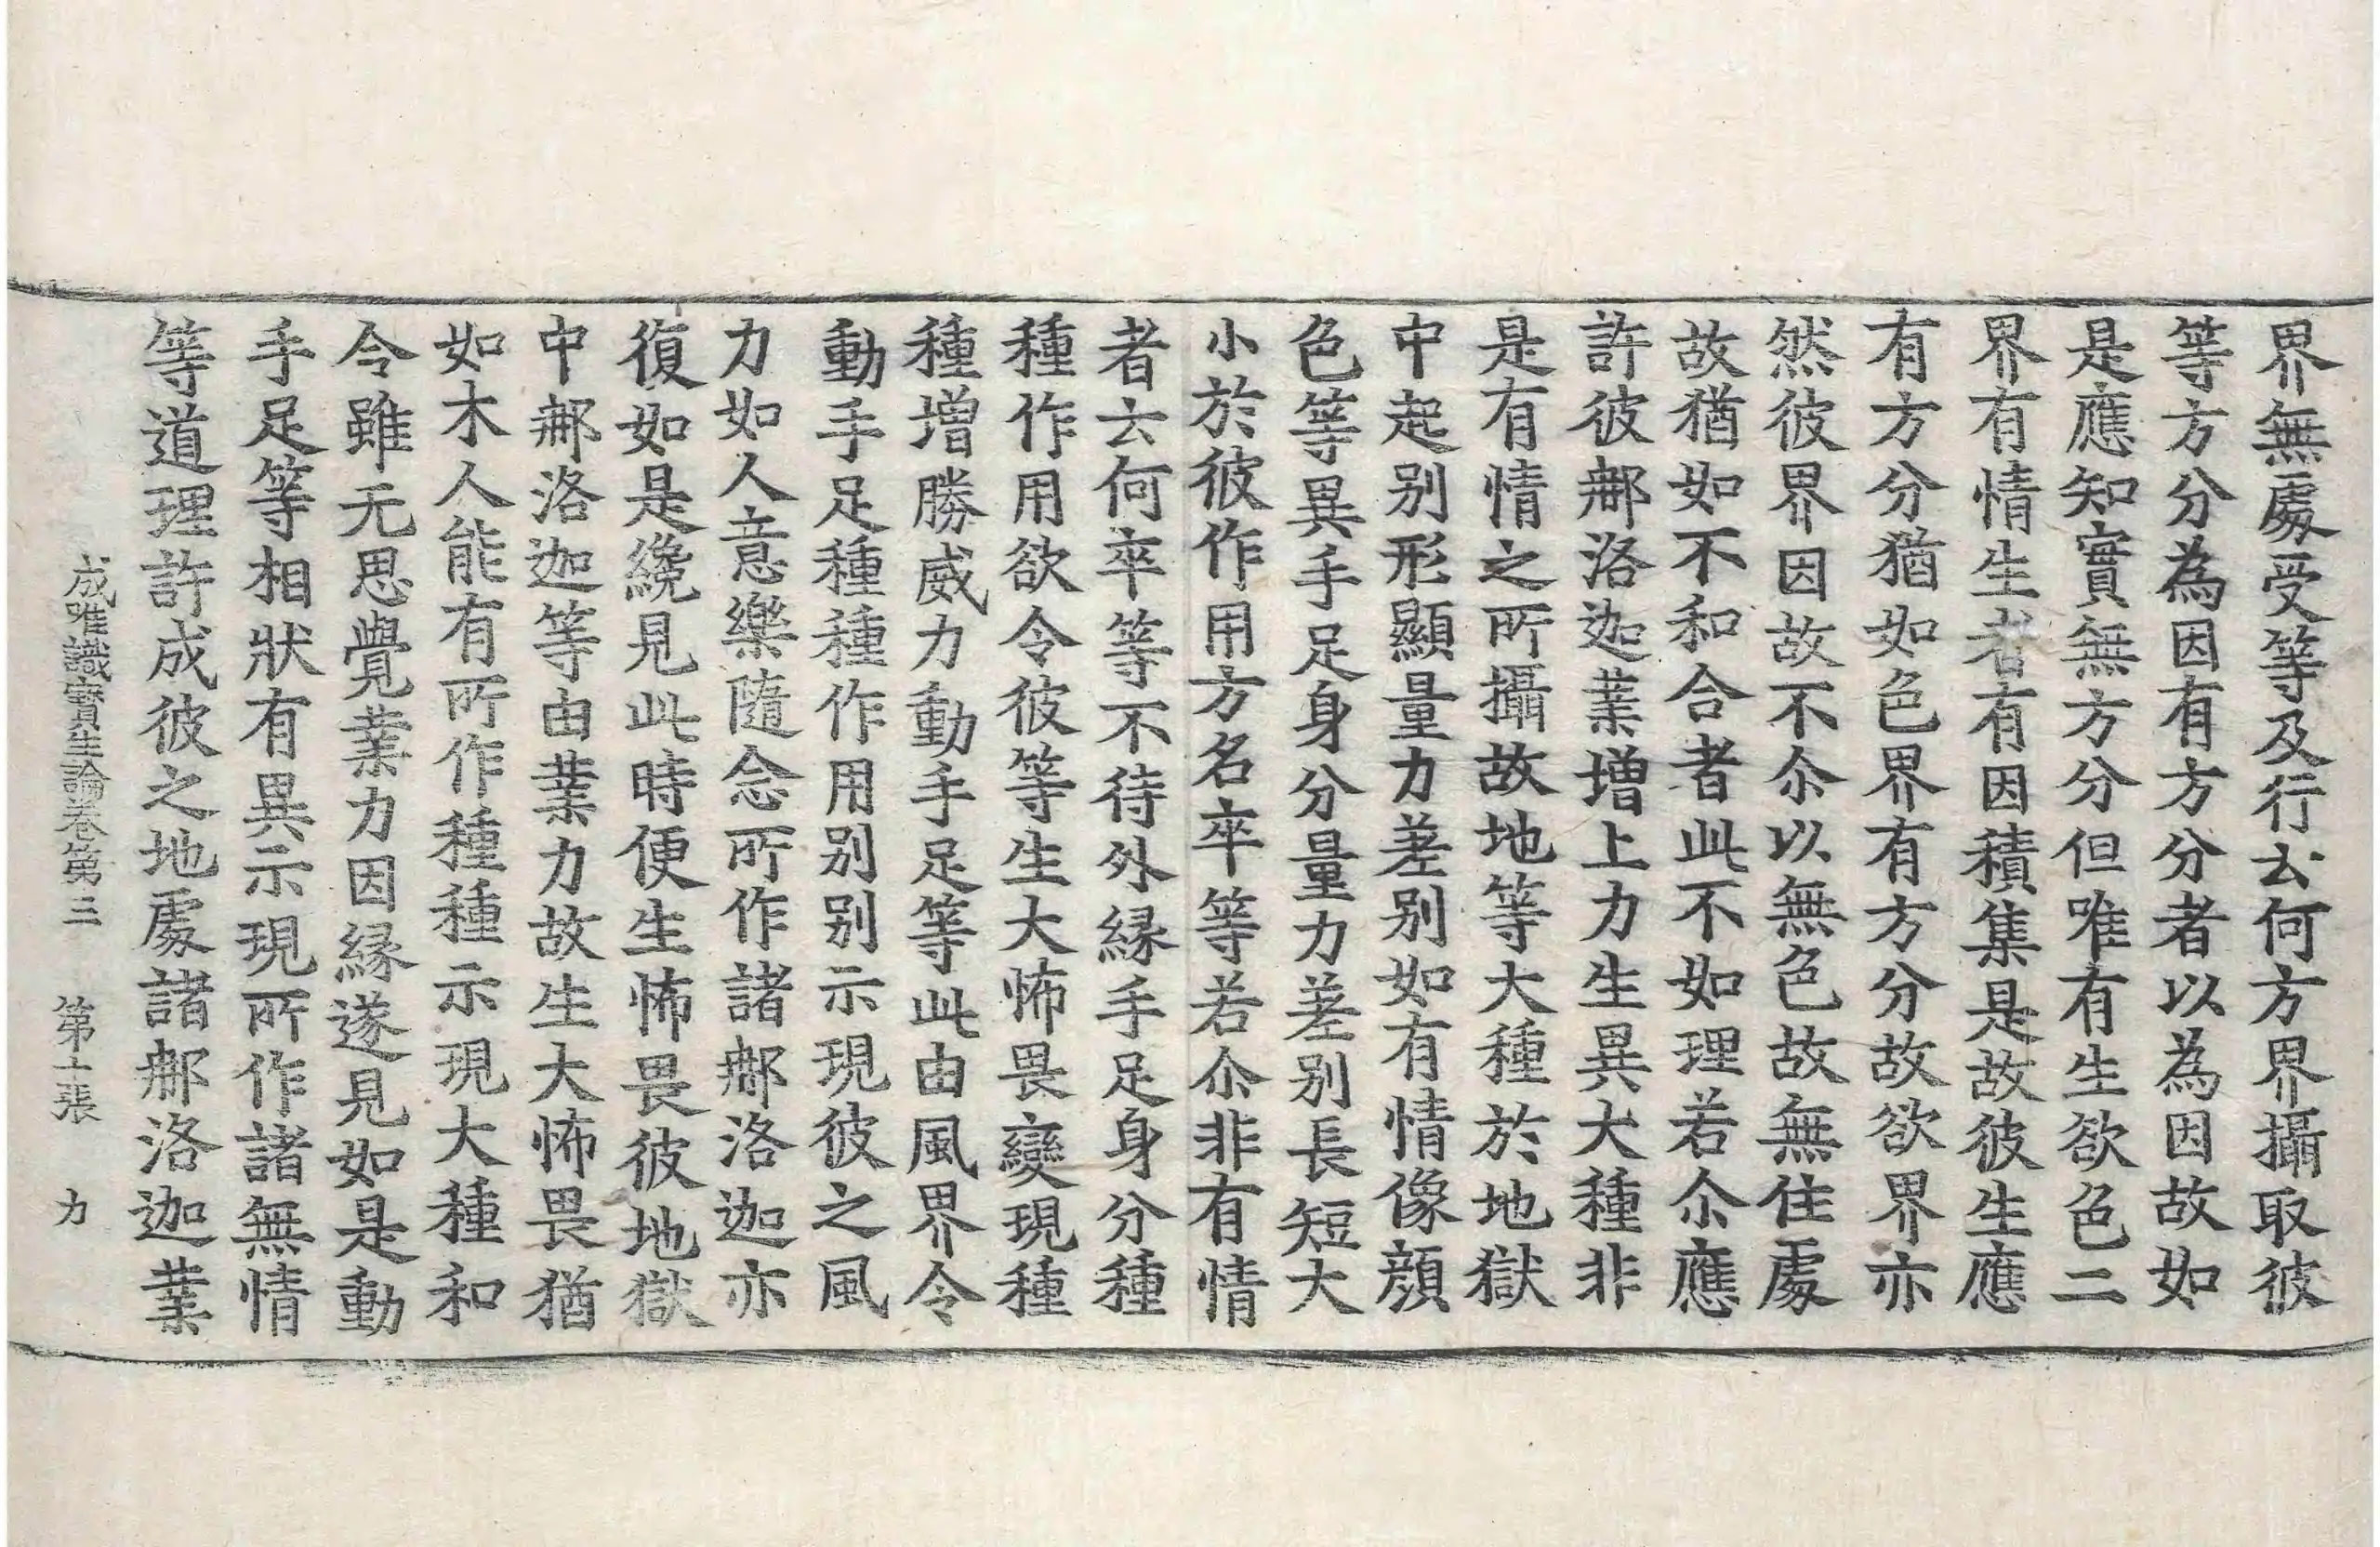 界無處受等及行去何方界攝取彼
等方分為因有方分者以為因故如
是應知實無方分但唯有生欲色二
界有情生者有因積集是故彼生應
有方分猶如色界有方分故欲界亦
然彼界因故不尒以無色故無住處
故猶如不和合者此不如理若尒應
許彼郍洛迦業增上力生異大種非
是有情之所攝故地等大種於地獄
中起别形顯量力差别如有情像顔
色等異手足身分量力差别長短大
小於彼作用方名卒等若尒非有情
者云何卒等不待外緣手足身分種
種作用欲令彼等生大怖畏變現種
種增勝威力動手足等此由風界令
動手足種種作用别别示現彼之風
力如人意樂隨念所作諸郍洛迦亦
復如是纔見此時便生怖畏彼地獄
中郍洛迦等由業力故生大怖畏猶
如木人能有所作種種示現大種和
令雖无思覺業力因緣遂見如是動
手足等相狀有異示現所作諸無情
等道理許成彼之地處諸郍洛迦業
成唯識寶生論卷第三 第十張 力